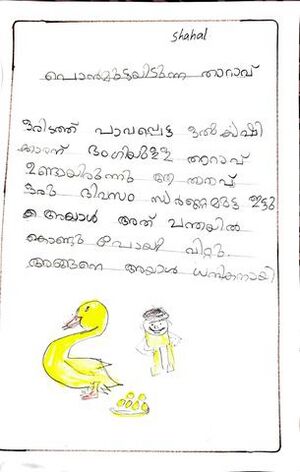 Shahal
പൊൻമുട്ടയിടുന്ന താറാവ്
ഒരിടത്ത് പാവപ്പെട്ട ഒരു കൃഷി
ക്കാരന് ഭംഗിയുള്ള താറാവ്
ഉണ്ടായിരുന്നു ആ താറാവ്
ഒരു ദിവസം സ്വർണ്ണമുട്ട ഇട്ടു
അയാൾ അത് ചന്തയിൽ
കൊണ്ടു പോയി വിറ്റു.
അങ്ങനെ അയാൾ ധനികനായി